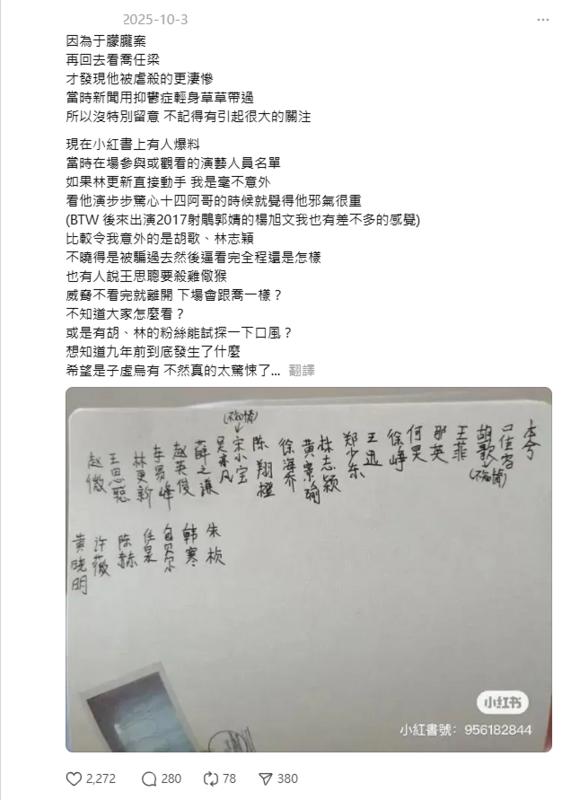 2025-10-3
因為于朦朧案
再回去看喬任梁
才發現他被虐殺的更淒慘
當時新聞用抑鬱症輕身草草帶過
所以沒特別留意 不記得有引起很大的關注
現在小紅書上有人爆料
當時在場參與或觀看的演藝人員名單
如果林更新直接動手 我是毫不意外
看他演步步驚心十四阿哥的時候就覺得他邪氣很重
(BTW 後來出演2017射鵰郭婧的楊旭文我也有差不多的感覺)
比較令我意外的是胡歌、林志穎
不曉得是被騙過去然後逼看完全程還是怎樣
也有人說王思聰要殺雞儆猴
威脅不看完就離開 下場會跟喬一樣？
不知道大家怎麼看？
或是有胡、林的粉絲能試探一下口風？
想知道九年前到底發生了什麼
希望是子虛烏有 不然真的太驚悚了... 翻譯
本兮
胡歌
(不知情)
王菲
那英
何炅
徐峥
王迅
郑少东
林志颖
黄景瑜
徐海乔
陈翔
(不知情)
宋小宝
吴亦凡
薛之谦
赵英俊
李易峰
林更新
王思聪
赵薇
朱桢
韩寒
贝尔
任泉
陈赫
许薇
黄晓明
小红书
小紅書號：956182844
2,272
280
78
380